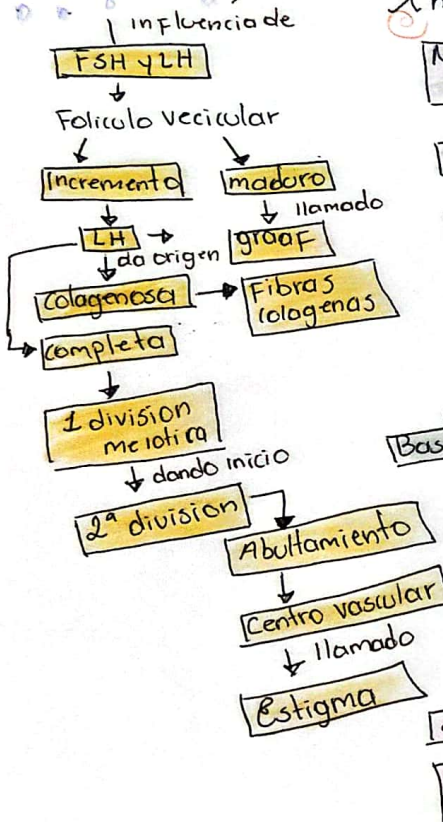 influencia de
FSH y LH
Foliculo vecicular
incremento
maduro
llamado
LH
graaF
da origen
colagenosa
Fibras
colagenas
completa
1 division
meiotica
dando inicio
2ª division
Abultamiento
Centro vascular
llamado
Estigma
Bas